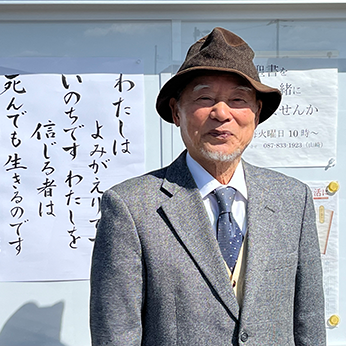 わたしは
よみがえり
いのちです わたしを
信じる者は
死んでも生きるのです
書を
緒に
せんか
火曜日 10時～
087-833-1923 (山崎)
活